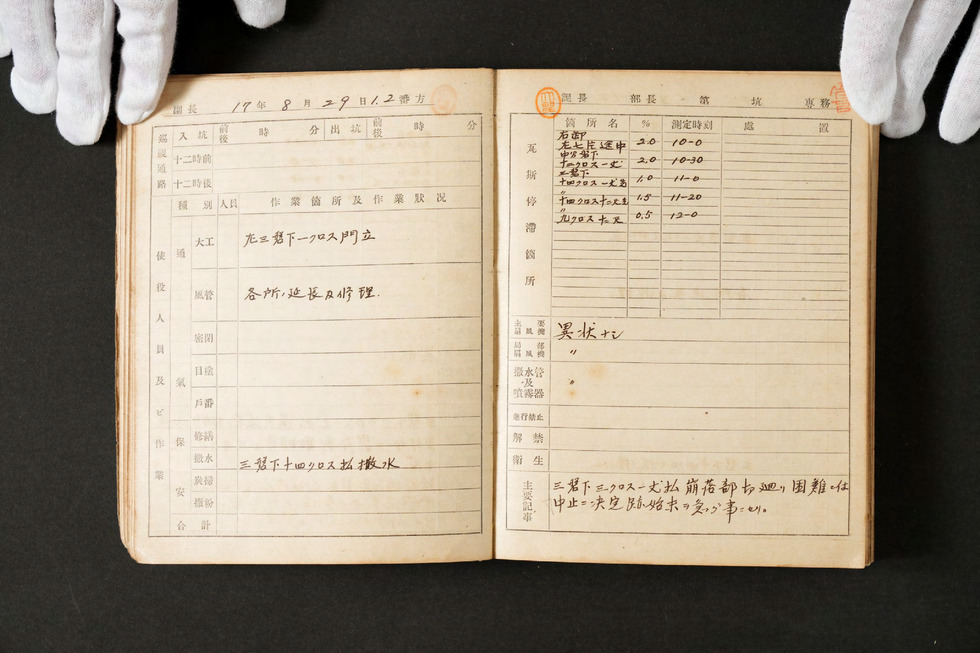 副長 17年 8月 29日 1.2番方
巡視通路 入坑 前後 時 分 出坑 前後 時 分
十二時前
十二時後
種別 人員 作業箇所及作業狀況
使役人員及ビ作業
通氣
大工 左三昇下一クロス門立
風管 各所ノ延長及修理.
密閉
目塗
戸番
保安
修繕
撒水 三昇下十四クロス払撒水
炭掃
撒粉
合計
課長 部長 第 坑 專務
瓦斯停滯箇所
箇所名 % 測定時刻 處置
右卸
左七片途中 2.0 10-0
中昇下
十二クロス一丈 2.0 10-30
三昇下
十四クロス一丈 1.0 11-0
〃
十四クロス十二丈 1.5 11-20
〃
九クロス 0.5 12-0
主要扇風機 異状ナシ
局部扇風機 〃
撒水管及噴霧器 〃
發行禁止
解禁
衛生
主要記事
三昇下三クロス一丈払崩落部切廻リ困難ニ付
中止ニ決定 跡始末ヲ急グ事ニセリ。